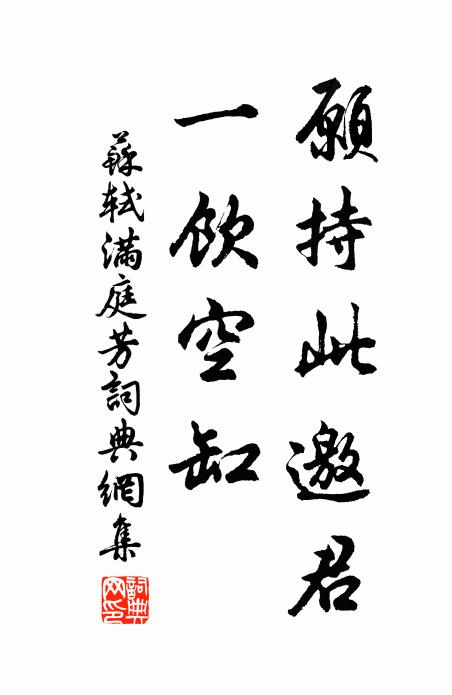 願持此邀君
一飲空缸
蘇軾滿庭芳詞典網集
詞典网印